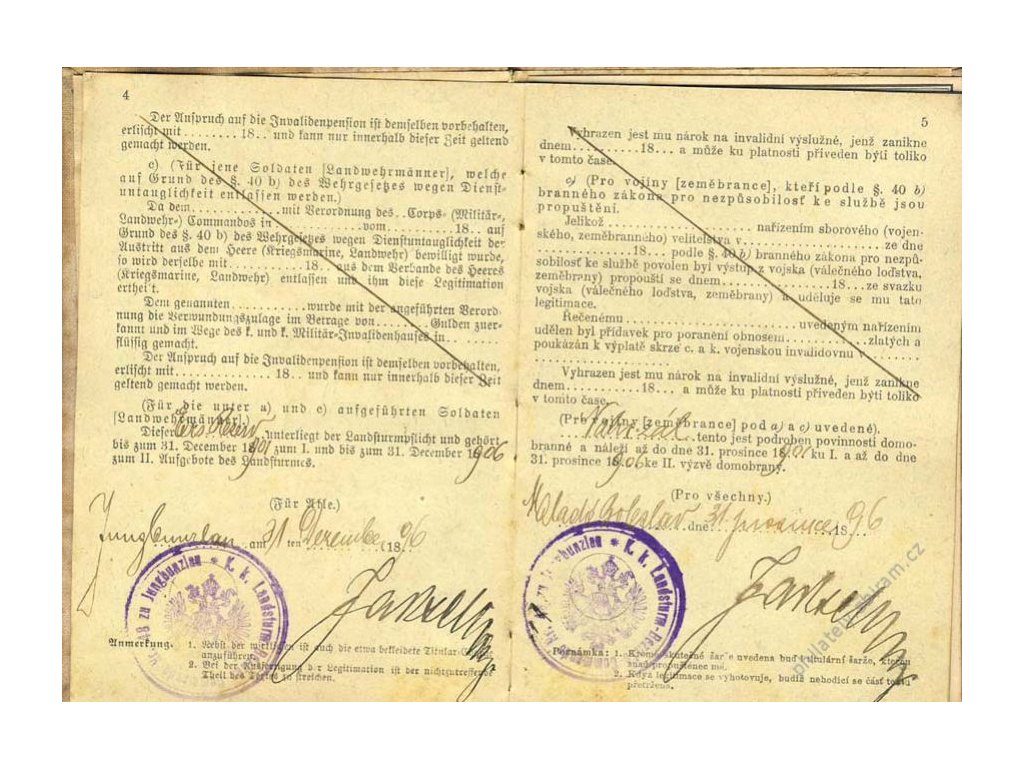 4
Der Anspruch auf die Invalidenpension ist demselben vorbehalten,
erlischt mit ........ 18.. und kann nur innerhalb dieser Zeit geltend
gemacht werden.
c) (Für jene Soldaten [Landwehrmänner], welche
auf Grund des §. 40 b) des Wehrgesetzes wegen Dienst-
untauglichkeit entlassen werden.)
Da dem .............. mit Verordnung des .. Corps- (Militär-,
Landwehr-) Commandos in ............ vom .......... 18.. auf
Grund des §. 40 b) des Wehrgesetzes wegen Dienstuntauglichkeit der
Austritt aus dem Heere (Kriegsmarine, Landwehr) bewilligt wurde,
so wird derselbe mit .......... 18.. aus dem Verbande des Heeres
(Kriegsmarine, Landwehr) entlassen und ihm diese Legitimation
ertheilt.
Dem genannten .......... wurde mit der angeführten Verord-
nung die Verwundungszulage im Betrage von ........ Gulden zuer-
kannt und im Wege des k. und k. Militär-Invalidenhauses in ........
flüssig gemacht.
Der Anspruch auf die Invalidenpension ist demselben vorbehalten,
erlischt mit .......... 18.. und kann nur innerhalb dieser Zeit
geltend gemacht werden.
(Für die unter a) und c) aufgeführten Soldaten
[Landwehrmänner].)
Dieser Ers. Reserv. unterliegt der Landsturmpflicht und gehört
bis zum 31. December 1901 zum I. und bis zum 31. December 1906
zum II. Aufgebote des Landsturmes.
(Für Alle.)
Jungbunzlau am 31 ten Dezember 1896
zu Jungbunzlau * K. k. Landsturm-
Anmerkung. 1. Nebst der wirklichen ist auch die etwa bekleidete Titular-
anzuführen.
2. Bei der Ausfertigung der Legitimation ist der nichtzutreffende
Theil des Textes zu streichen.
5
Vyhrazen jest mu nárok na invalidní výslužné, jenž zanikne
dnem .......... 18... a může ku platnosti přiveden býti toliko
v tomto čase.
c) (Pro vojiny [zeměbrance], kteří podle §. 40 b)
branného zákona pro nezpůsobilosť ke službě jsou
propuštěni.
Jelikož .................. nařízením sborového (vojen-
ského, zeměbranného) velitelstva v .................. ze dne
............ 18... podle §. 40 b) branného zákona pro nezpů-
sobilosť ke službě povolen byl výstup z vojska (válečného loďstva,
zeměbrany) propouští se dnem .......... 18... ze svazku
vojska (válečného loďstva, zeměbrany) a uděluje se mu tato
legitimace.
Řečenému .................. uvedeným nařízením
udělen byl přídavek pro poranění obnosem .......... zlatých a
poukázán k výplatě skrze c. a k. vojenskou invalidovnu v ........
Vyhrazen jest mu nárok na invalidní výslužné, jenž zanikne
dnem .......... 18... a může ku platnosti přiveden býti toliko
v tomto čase.
(Pro vojiny [zeměbrance] pod a) a c) uvedené).
tento jest podroben povinnosti domo-
branné a náleží až do dne 31. prosince 1901 ku I. a až do dne
31. prosince 1906 ke II. výzvě domobrany.
(Pro všechny.)
Mladá Boleslav dne 31 prosince 1896
zu Jungbunzlau * K. k. Landsturm-
Poznámka: 1. Kromě skutečné šarže uvedena buď titulární šarže, kterou
snad propuštěnec má.
2. Když legitimace se vyhotovuje, budiž nehodící se část textu
přetržena.